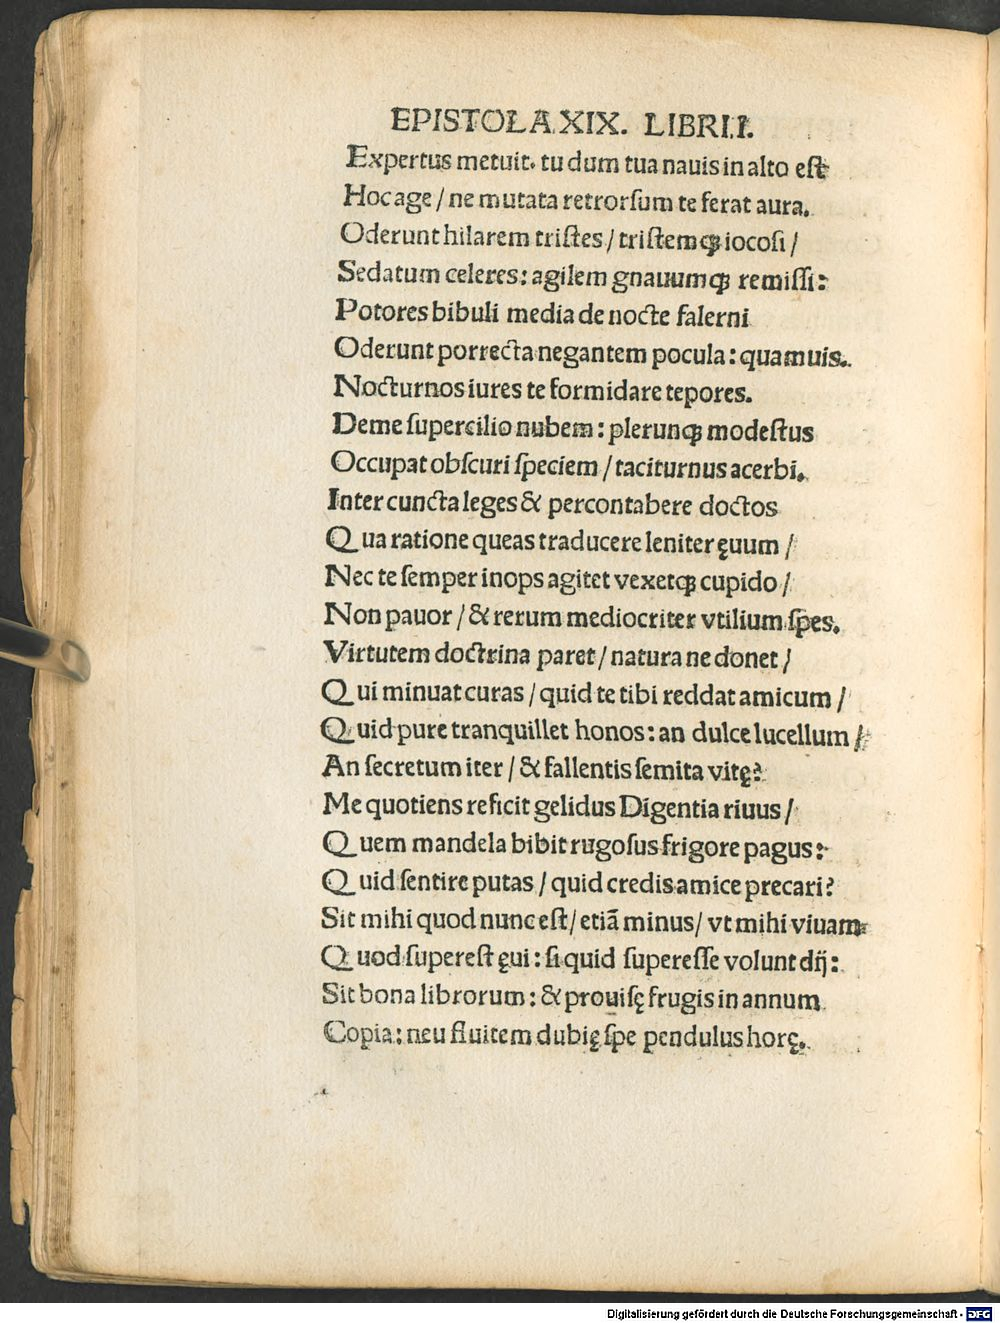 EPISTOLA XIX. LIBRI.I.
Expertus metuit. tu dum tua nauis in alto est
Hoc age / ne mutata retrorſum te ferat aura.
Oderunt hilarem tristes / tristemqꝫ iocoſi /
Sedatum celeres: agilem gnauumqꝫ remiſſi:
Potores bibuli media de nocte falerni
Oderunt porrecta negantem pocula: quamuis.
Nocturnos iures te formidare tepores.
Deme ſupercilio nubem: plerunqꝫ modestus
Occupat obſcuri ſpeciem / taciturnus acerbi.
Inter cuncta leges & percontabere doctos
Qua ratione queas traducere leniter ęuum /
Nec te ſemper inops agitet vexetqꝫ cupido /
Non pauor / & rerum mediocriter vtilium ſpes.
Virtutem doctrina paret / natura ne donet /
Qui minuat curas / quid te tibi reddat amicum /
Quid pure tranquillet honos: an dulce lucellum /
An ſecretum iter / & fallentis ſemita vitę?
Me quotiens reficit gelidus Digentia riuus /
Quem mandela bibit rugoſus frigore pagus:
Quid ſentire putas / quid credis amice precari?
Sit mihi quod nunc est / etiã minus / vt mihi viuam
Quod ſuperest ęui: ſi quid ſupereſſe volunt dij:
Sit bona librorum: & prouiſę frugis in annum
Copia: neu fluitem dubię ſpe pendulus horę.
Digitalisierung gefördert durch die Deutsche Forschungsgemeinschaft - DFG